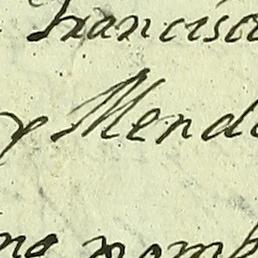 Francisca
y Mendo
ng nomb